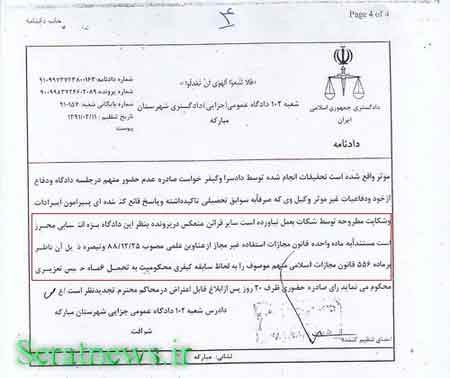 چاپ دادنامه
۴
Page 4 of 4
«فلا تتبعوا الهوی ان تعدلوا»
شماره دادنامه:
شماره پرونده:
شماره بایگانی شعبه:
تاریخ تنظیم: ۱۳۹۱/۰۲/۱۱
پیوست
شعبه ۱۰۲ دادگاه عمومی (جزایی) دادگستری شهرستان
مبارکه
دادگستری جمهوری اسلامی
ایران
دادنامه
موثر واقع شده است تحقیقات انجام شده توسط دادسرا وکیفر خواست صادره عدم حضور متهم درجلسه دادگاه ودفاع
از خود ودفاعیات غیر موثر وکیل وی که صرفآبه سوابق تحصیلی تاکیدداشته وپاسخ قانع کننده ای پیرامون ایرادات
وشکایت مطروحه توسط شکات بعمل نیاورده است سایر قرائن منعکس درپرونده بنظر این دادگاه بزه انتسابی محرز
است مستندآبه ماده واحده قانون مجازات استفاده غیر مجاز ازعناوین علمی مصوب ۸۸/۱۲/۲۵ وتبصره ذیل آن ناظر
برماده ۵۵۶ قانون مجازات اسلامی متهم موصوف را به لحاظ سابقه کیفری محکومیت به تحمل حبس تعزیری
محکوم می نماید رای صادره حضوری ظرف ۲۰ روز پس ازابلاغ قابل اعتراض درمحاکم محترم تجدیدنظر است
دادرس شعبه ۱۰۲ دادگاه عمومی جزایی شهرستان مبارکه
شرافت
امضای تنظیم کننده:
نشانی: مبارکه
Seratnews.ir